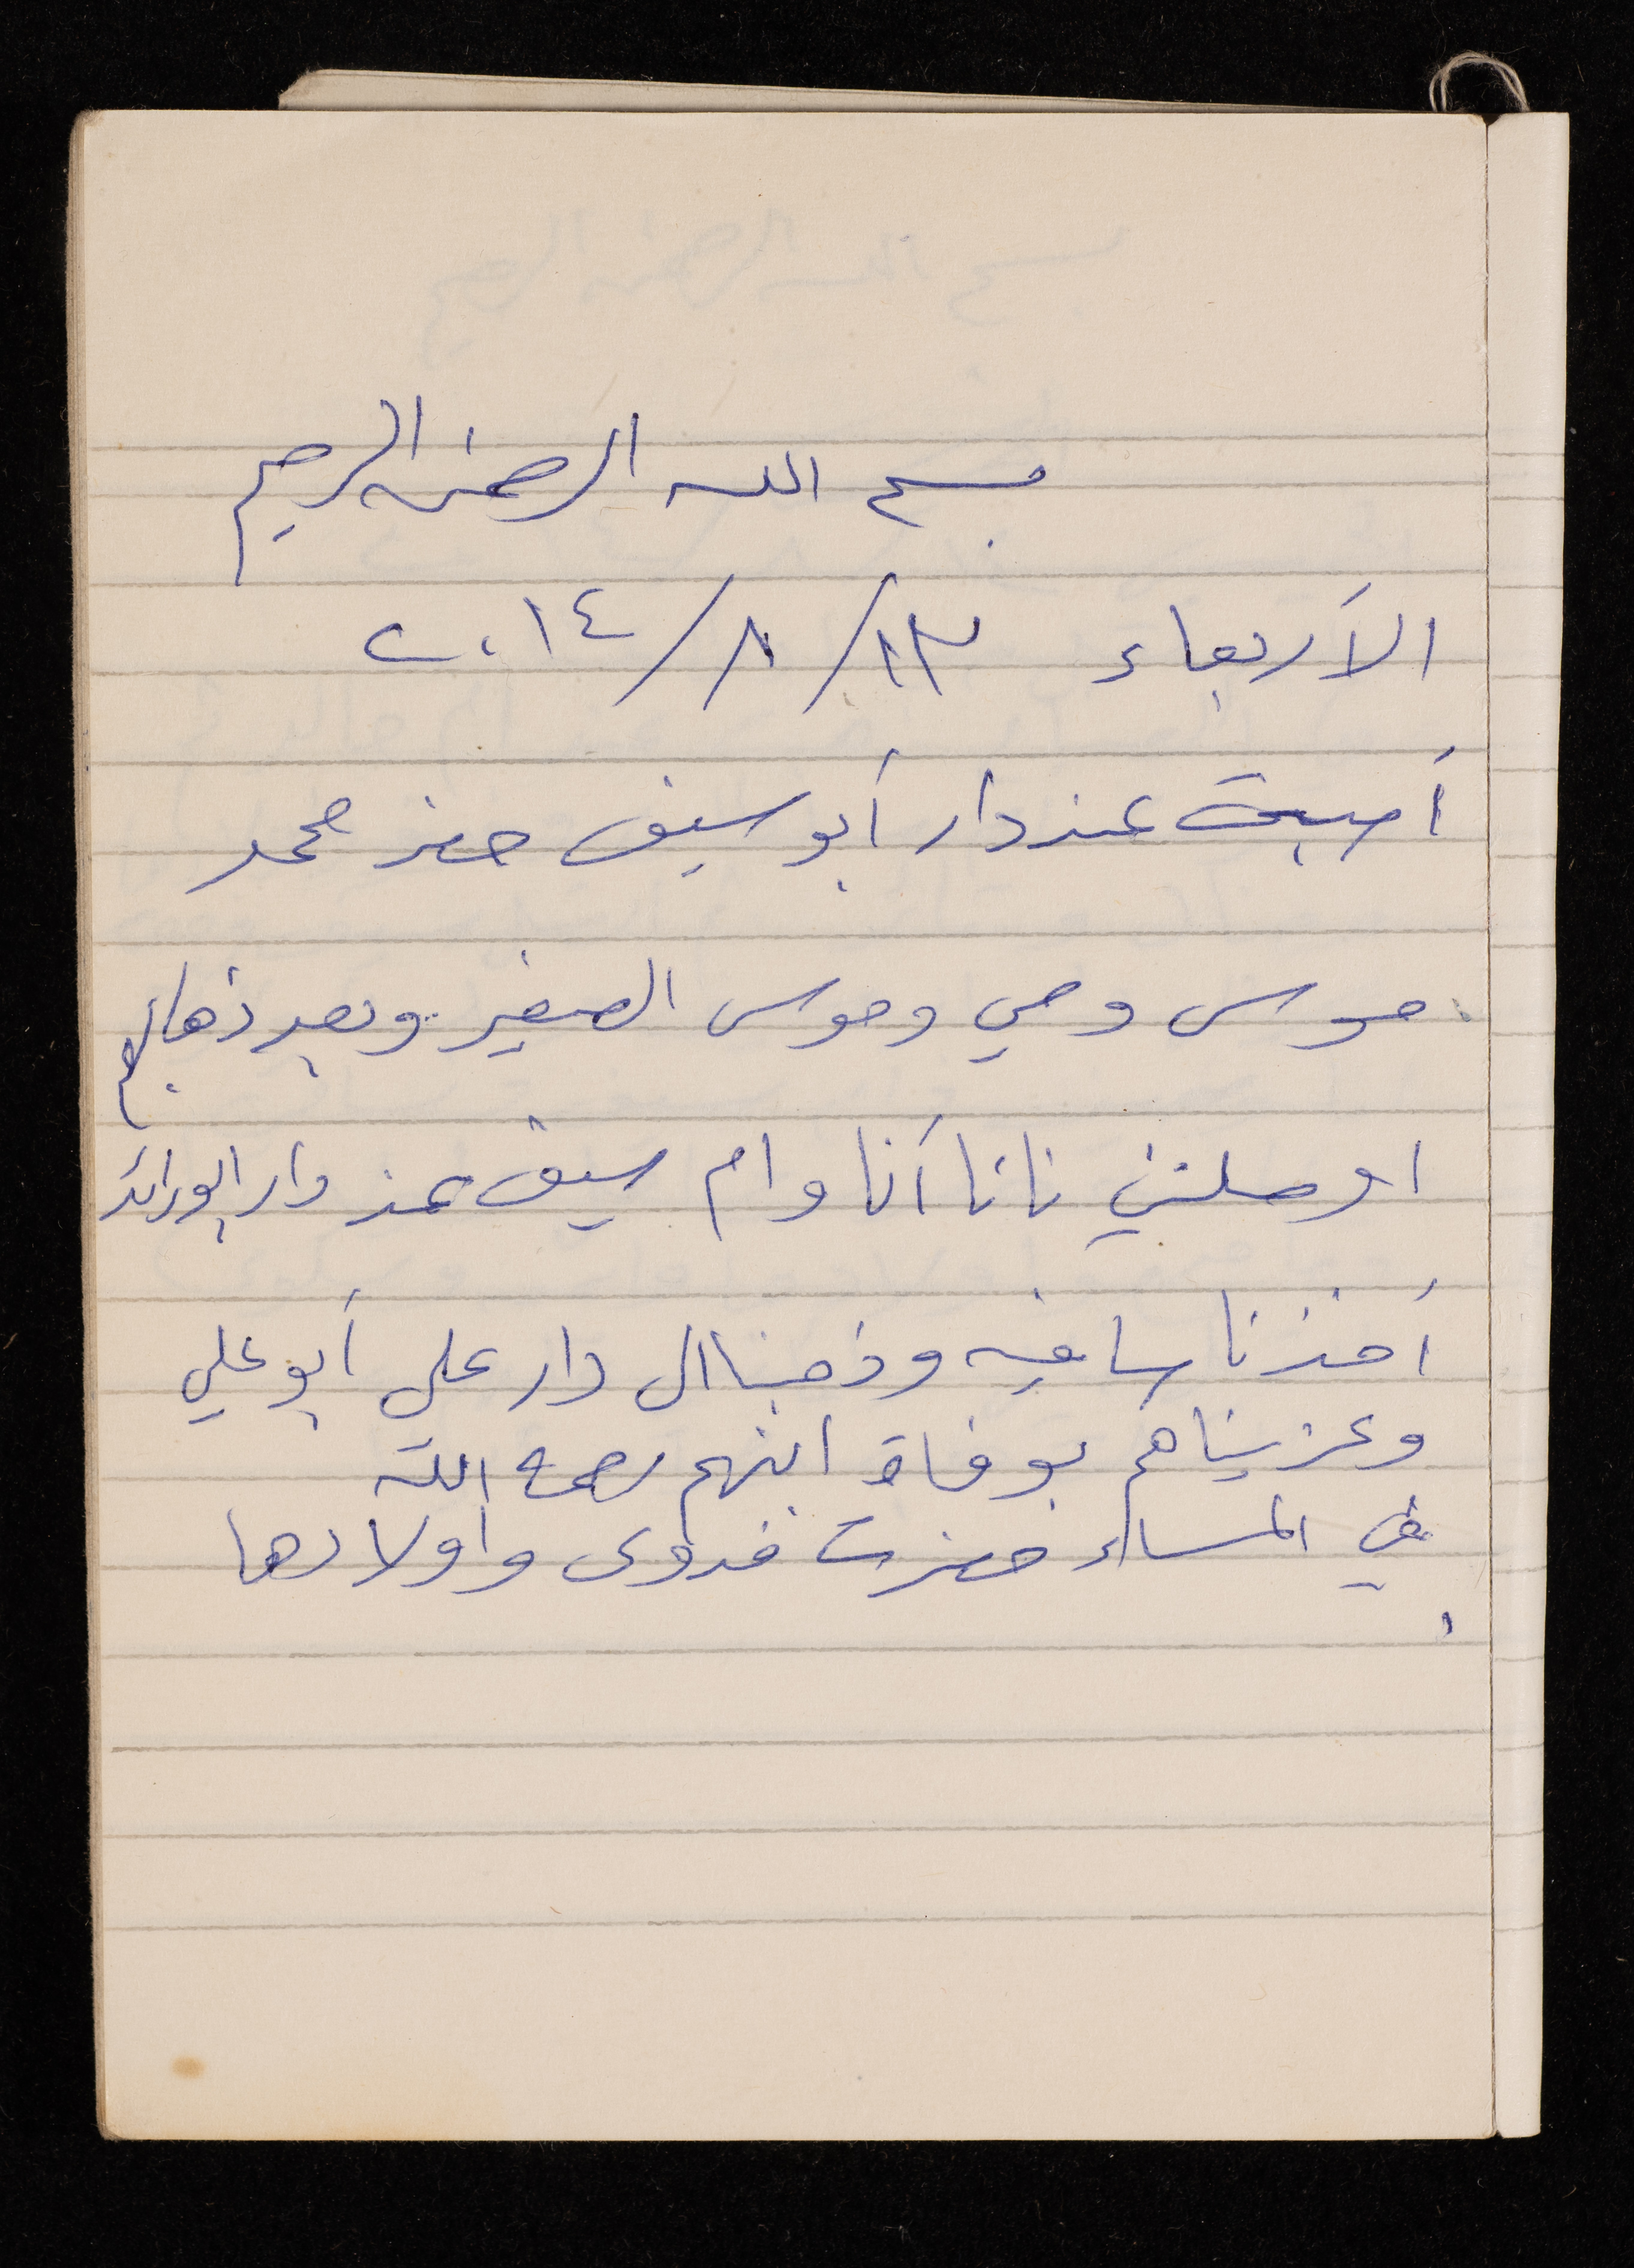 بسم الله الرحمن الرحيم
الأربعاء ١٣/٨/٢٠١٤
أصبحت عند دار أبو سيف حضر محمد
موسى ومي وموسى الصغير وبعد ذهابهم
اوصلتني نانا أنا وام سيف عند دار ابو رائد
أخذنا سافيه وذهبنا الى دار علي أبو علي
وعزيناهم بوفاة ابنهم رحمه الله
في المساء حضرت فدوى وأولادها